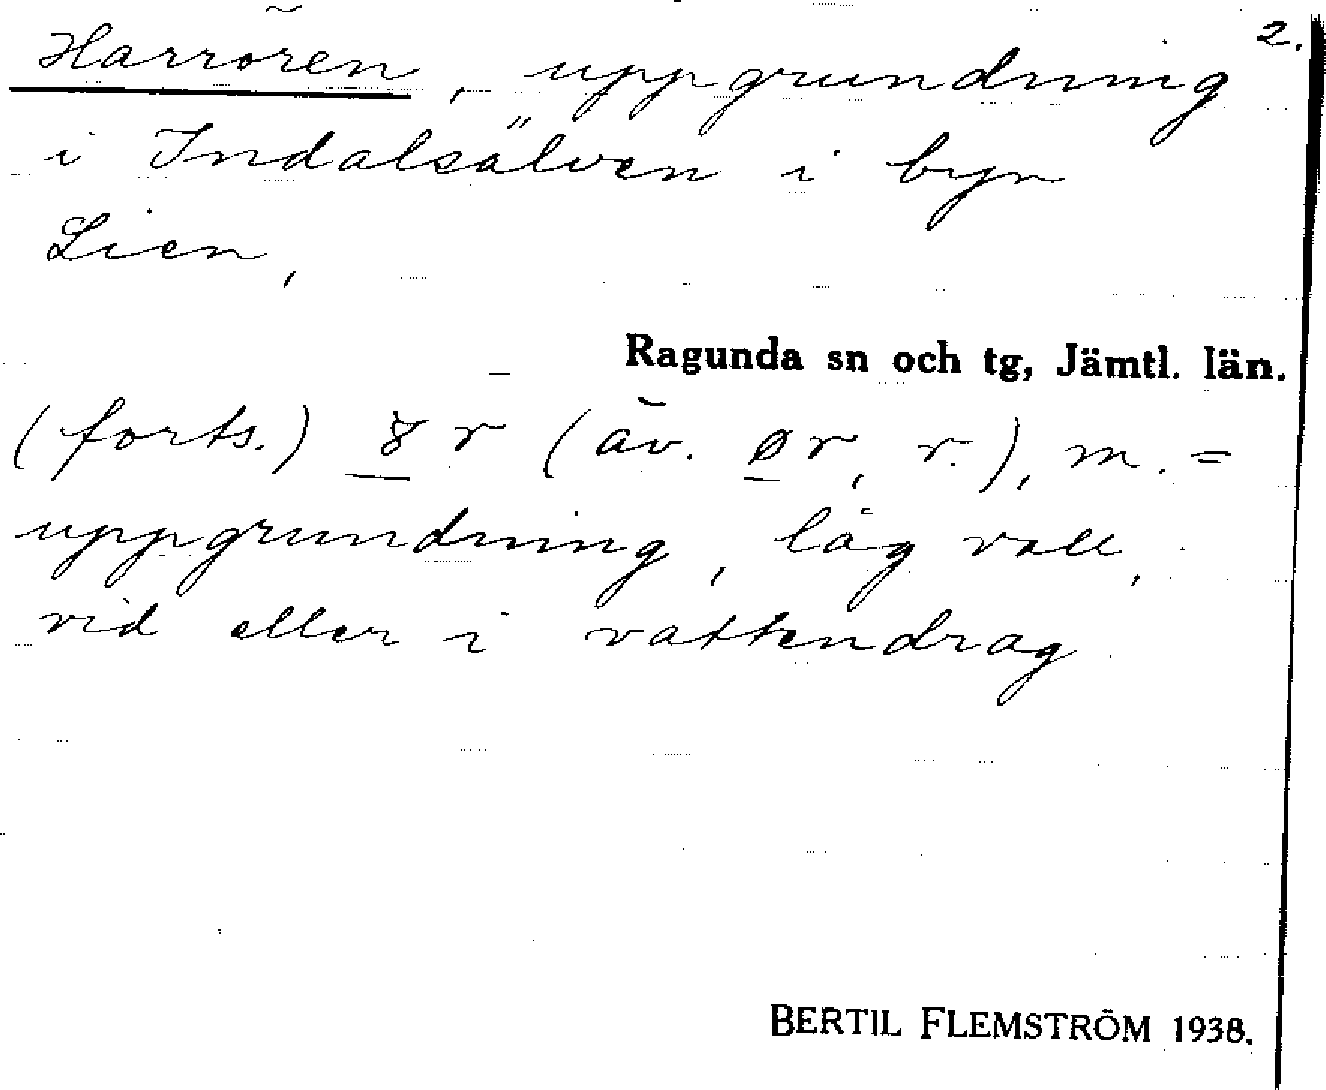 2.
Harrören, uppgrundning
i Indalsälven i byn
Lien,
Ragunda sn och tg, Jämtl. län.
(forts.) r (äv. ør, r.), m. =
uppgrundning, låg vall,
vid eller i vattendrag
BERTIL FLEMSTRÖM 1938.